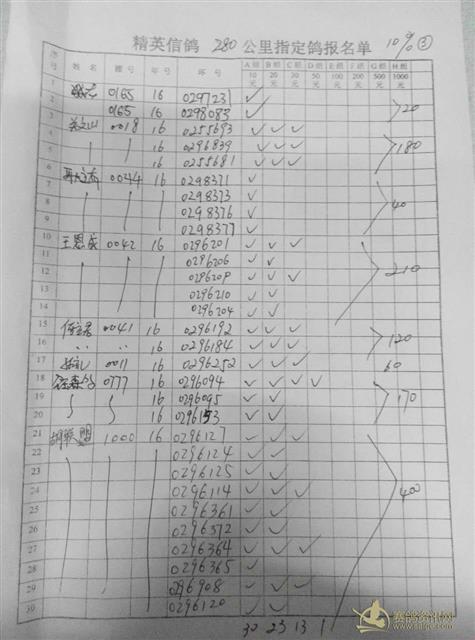 精英信鸽 280 公里指定鸽报名单 10% ③
序号 姓名 棚号 年号 环号 A组 B组 C组 D组 E组 F组 G组 H组
10元 20元 30元 50元 100元 200元 500元 1000元
1 0165 16 0297231 ✓
2 0165 16 0298083 ✓ >20
3 关文山 0018 16 0255693 ✓ ✓ ✓
4 16 0296839 ✓ ✓ ✓ >180
5 16 0255681 ✓ ✓ ✓
6 0044 16 0298371 ✓
7 0298373 ✓
8 0298376 ✓ >40
9 0298377 ✓
10 王恩成 0042 16 0296201 ✓ ✓ ✓
11 0296206 ✓ ✓
12 0296209 ✓ ✓ ✓ >210
13 0296210 ✓ ✓
14 0296204 ✓ ✓
15 0041 16 0296192 ✓ ✓ ✓
16 〃 〃 16 0296184 ✓ ✓ ✓ >120
17 0011 16 0296252 ✓ ✓ ✓ 60
18 0777 16 0296094 ✓ ✓ ✓ ✓
19 16 0296095 ✓ ✓ >170
20 16 0296153 ✓ ✓
21 胡联盟 1000 16 0296127 ✓ ✓ ✓
22 0296124 ✓ ✓
23 0296125 ✓ ✓
24 0296114 ✓ ✓ ✓
25 0296361 ✓ ✓ >400
26 0296372 ✓ ✓
27 0296364 ✓ ✓ ✓
28 0296365 ✓ ✓
29 0296908 ✓ ✓ ✓
30 0296120 ✓ ✓
30 23 13 1
赛鸽资讯网